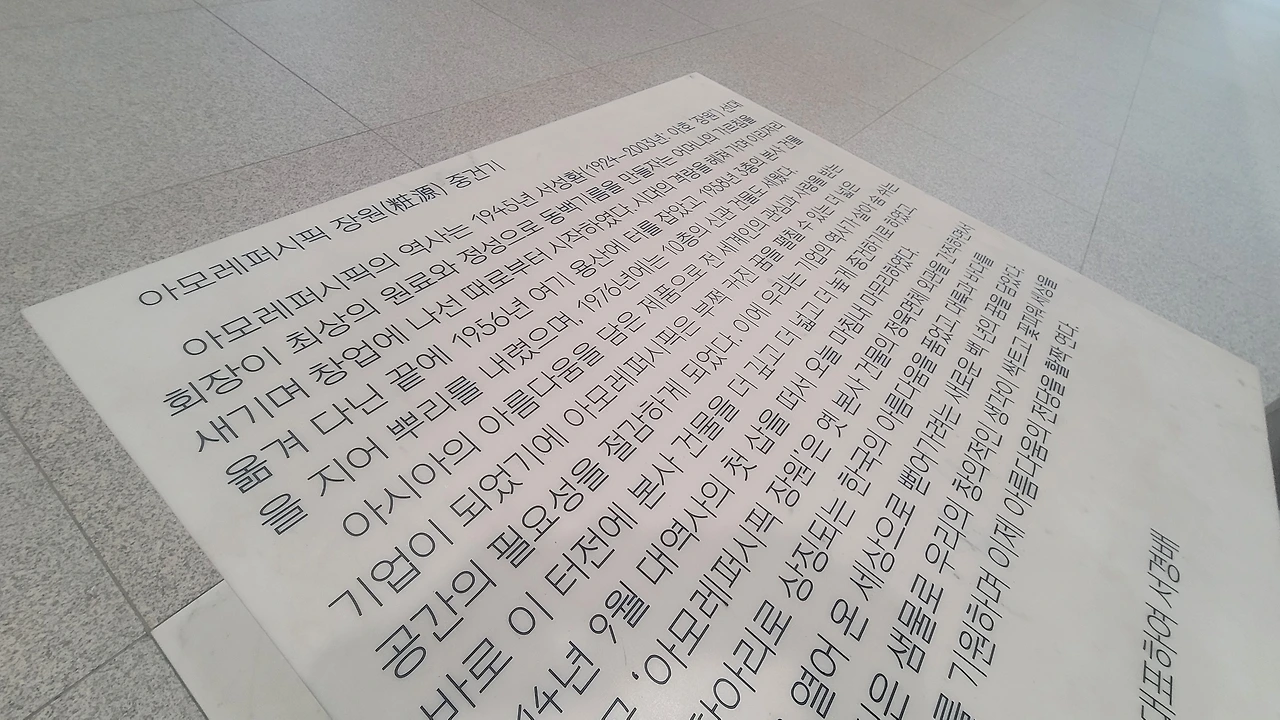 아모레퍼시픽 장원(粧源) 중건기
아모레퍼시픽의 역사는 1945년 서성환(1924-2003년 아호 '장원') 선대
회장이 최상의 원료와 정성으로 동백기름을 만들자는 어머니의 가르침을
새기며 창업에 나선 때로부터 시작하였다. 시대의 격랑을 헤쳐 가며 이리저리
옮겨 다닌 끝에 1956년 여기 용산에 터를 잡았고, 1958년 3층의 본사 건물
을 지어 뿌리를 내렸으며, 1976년에는 10층의 신관 건물도 세웠다.
아시아의 아름다움을 담은 제품으로 전 세계인의 관심과 사랑을 받는
기업이 되었기에 아모레퍼시픽은 부쩍 커진 꿈을 펼칠 수 있는 더 넓은
공간의 필요성을 절감하게 되었다. 이에 우리는 기업의 역사가 살아 숨 쉬는
바로 이 터전에 본사 건물을 더 깊고 더 넓고 더 높게 중건하기로 하였고
14년 9월 대역사의 첫 삽을 떠서 오늘 마침내 마무리하였다.
'아모레퍼시픽 장원'은 옛 본사 건물의 정육면체 외관을 간직하면서
항아리로 상징되는 한국의 아름다움을 품었고, 대륙과 바다를
열어 온 세상으로 뻗어가려는 새로운 백 년의 꿈을 담았다.
은 샘물로 우리의 창의적인 생각이 싹트고 꽃피워 세상을
를 기원하며 이제 아름다움의 전당을 활짝 연다.
대표하여 서경배